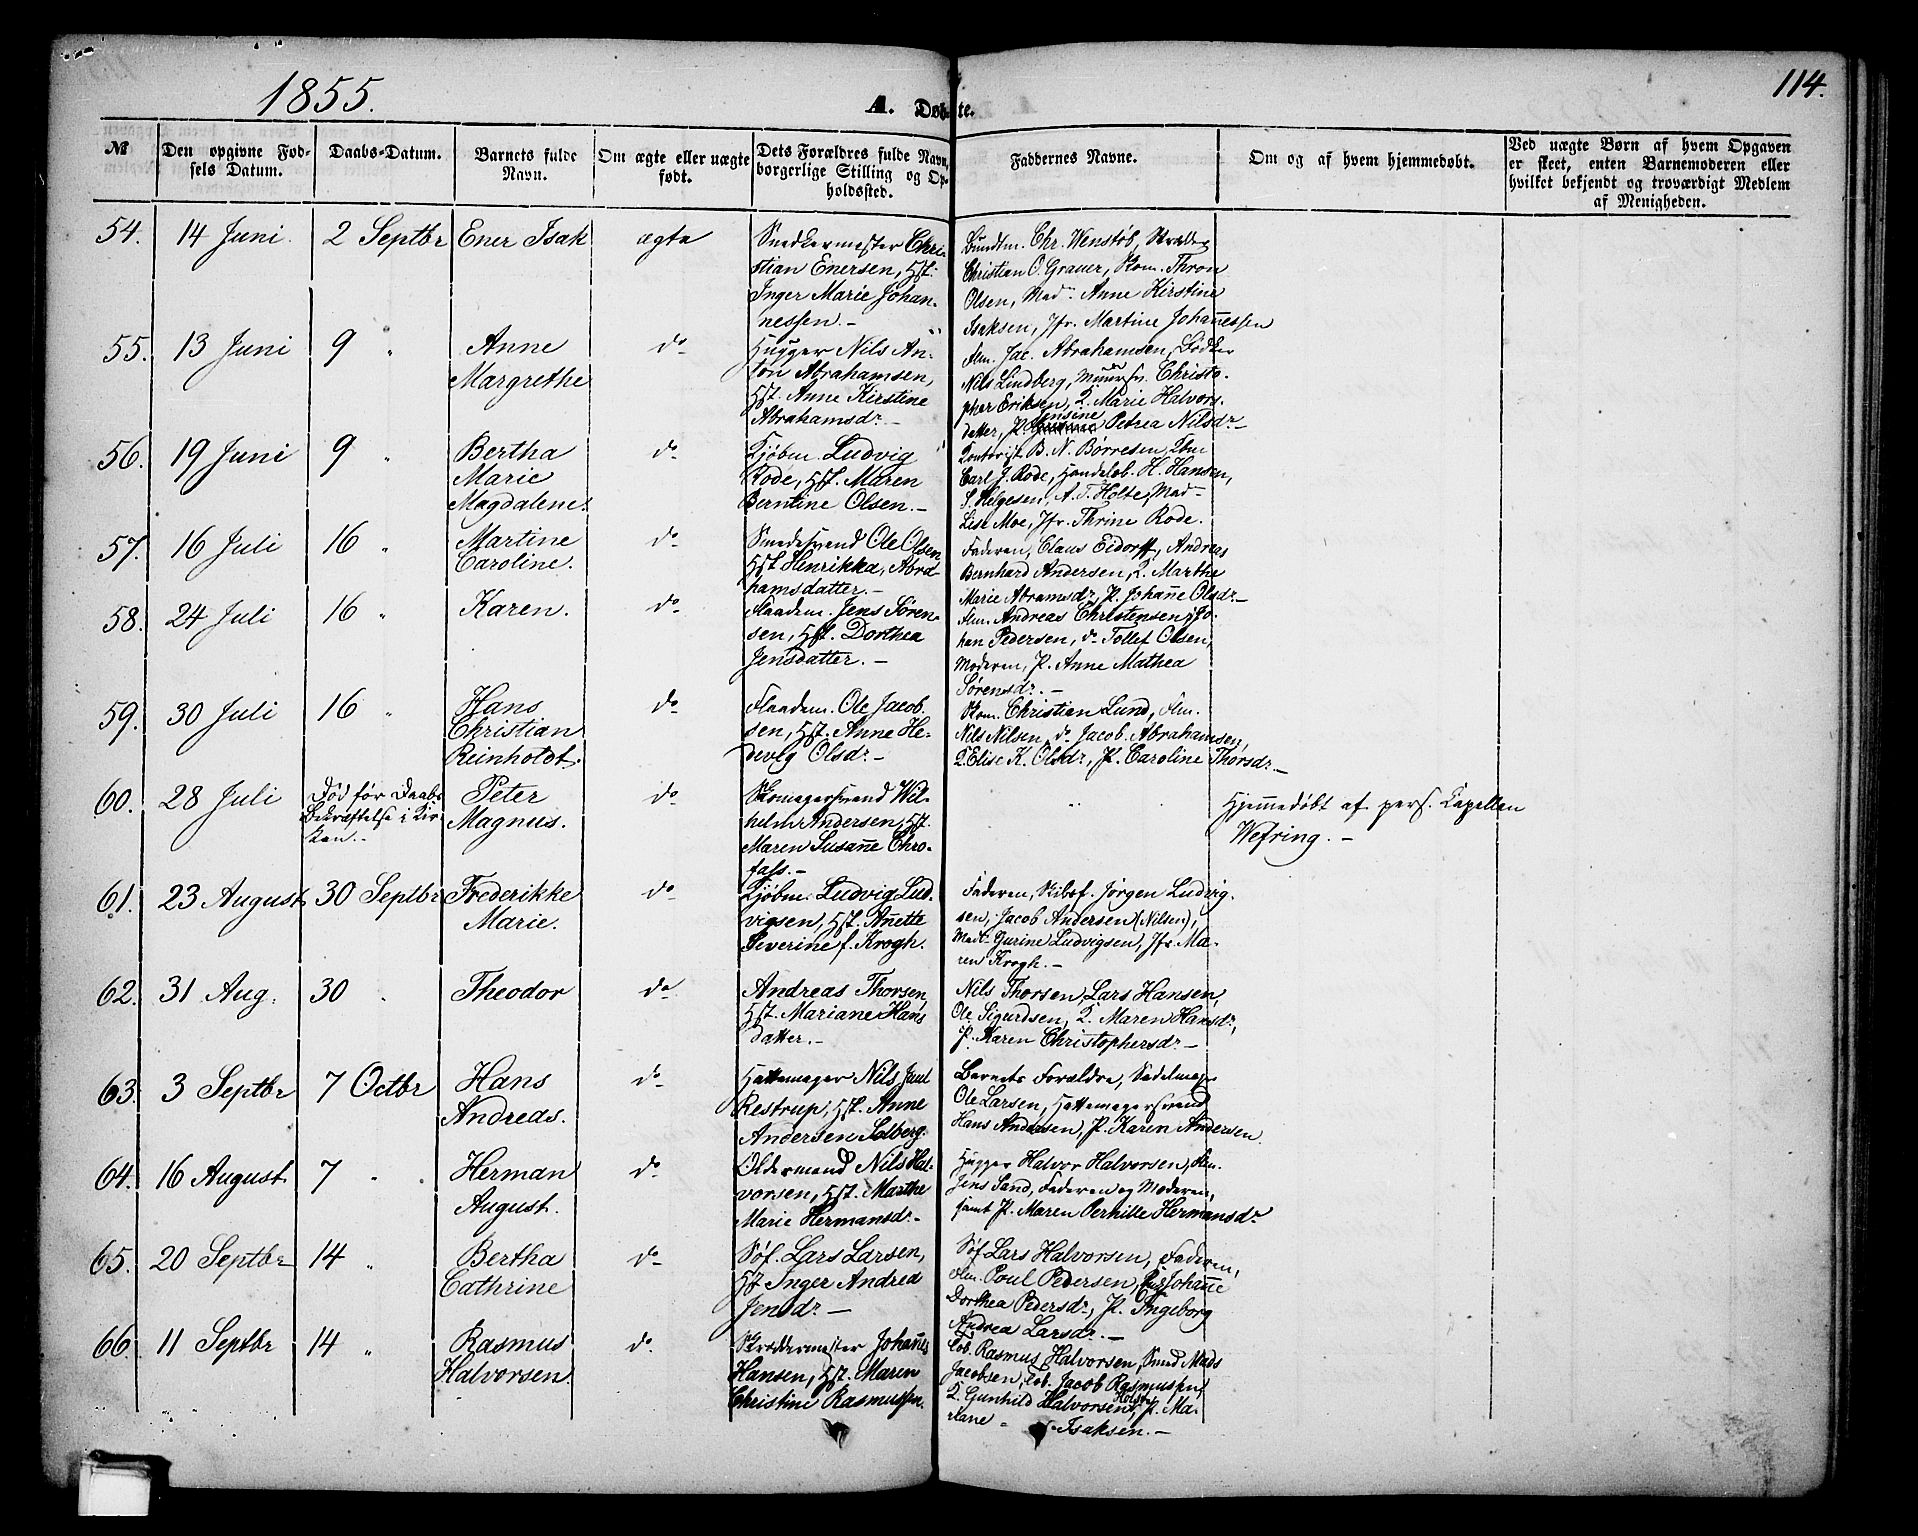 1855.
A. Døbte.
114.
№
Den opgivne Fød-
sels Datum.
Daabs-Datum.
Barnets fulde
Navn.
Om ægte eller uægte
født.
Dets Forældres fulde Navn,
borgerlige Stilling og Op-
holdssted.
Faddernes Navne.
Om og af hvem hjemmedøbt.
Ved uægte Børn af hvem Opgaven
er skeet, enten Barnemoderen eller
hvilket bekjendt og troværdigt Medlem
af Menigheden.
54.
14 Juni.
2 Septbr
Ener Isak
ægte
Snedkermester Chri-
stian Enersen, Hst.
Inger Marie Johan-
nessen. -
Bundtm. Chr. Wenstøb,
Christian O. Grauer, Skom. Thron
Olsen, Mad. Anne Kirstine
Isaksen, Jfr. Martine Johanessen
55.
13 Juni
9 "
Anne
Margrethe
do
Hugger Nils An-
ton Abrahamsen,
Hst. Anne Kirstine
Abrahamsdr. -
Flm. Jac. Abrahamsen, Bødker
Nils Lindberg, Christo-
pher Eriksen, Q. Marie Halvors-
datter, P. Jensine Petrea Nilsdr -
56.
19 Juni
9 "
Bertha
Marie
Magdalene.
do
Kjøbm. Ludvig
Rode, Hst. Maren
Berntine Olsen. -
Kontorist B. N. Børresen,
Carl J. Rode, Handelsb. H. Hansen,
S. Helgesen, A. T. Holte, Mad-
Lise Moe, Jfr. Thrine Rode.
57.
16 Juli
16 "
Martine
Caroline.
do
Smedesvend Ole Olsen
Hst Henrikka Abra-
hamsdatter. -
Faderen, Claus Eidorff, Andreas
Bernhard Andersen, Q. Marthe
Marie Abramsdr, P. Johane Olsdr -
58.
24 Juli
16 "
Karen.
do
Flaadem. Jens Søren-
sen, Hst. Dorthea
Jensdatter. -
Flm. Andreas Christensen, Jo-
han Pedersen, do Tollef Olsen,
Moderen, P. Anne Mathea
Sørensdr. -
59.
30 Juli
16 "
Hans
Christian
Reinholdt.
do
Flaadem. Ole Jacob-
sen, Hst. Anne He-
devig Olsdr -
Skom. Christian Lund, Flm.
Nils Nilsen, do Jacob Abrahamsen,
Q. Elise K. Olsdr, P. Caroline Thorsdr. -
60.
28 Juli
Død før Daabs
Bekræftelse i Kir-
ken. -
Peter
Magnus.
do
Skomagersvend Wil-
helm Andersen, Hst.
Maren Susane Chro-
fass. -
"
Hjemmedøbt af pers. Capellan
Wefring. -
61.
23 August
30 Septbr
Frederikke
Marie.
do
Kjøbm. Ludvig Lud-
vigsen, Hst. Anette
Severine f. Krogh.
Faderen, Skibsf. Jørgen Ludvig-
sen, Jacob Andersen (Nilsen),
Mad. Gurine Ludvigsen, Jfr. Ma-
ren Krogh. -
62.
31 Aug.
30 "
Theodor
do
Andreas Thorsen,
Hst. Mariane Hans
datter. -
Nils Thorsen, Lars Hansen,
Ole Sigurdsen, Q. Maren Hansdr,
P. Karen Christophersdr -
63.
3 Septbr
7 Octbr
Hans
Andreas.
do
Hattemager Nils Juul
Restrup, Hst. Anne
Andersen Solberg.
Barnets Forældre, Sadelmager
Ole Larsen, Hattemagersvend
Hans Andersen, P. Karen Andersen.
64.
16 August
7 "
Herman
August.
do
Oldermand Nils Hal-
vorsen, Hst. Marthe
Marie Hermansdr. -
Hugger Halvor Halvorsen, Flm.
Jens Sand, Faderen og Moderen,
samt P. Maren Pernille Hermansdr
65.
20 Septbr
14 "
Bertha
Cathrine
do
Søf. Lars Larsen,
Hst Inger Andrea
Jensdr -
Søf Lars Halvorsen, Faderen,
Flm. Poul Pedersen, Johane
Dorthea Pedersdr, P. Ingeborg
Andrea Larsdr. -
66.
11 Septbr
14 "
Rasmus
Halvorsen.
do.
Skræddermester Johanes
Hansen, Hst. Maren
Christine Rasmussen.
Lob. Rasmus Halvorsen, Smed Mads
Jacobsen, Lob. Jacob Rasmussen,
Q. Gunhild Halvorsen, P. Ma-
riane Isaksen. -